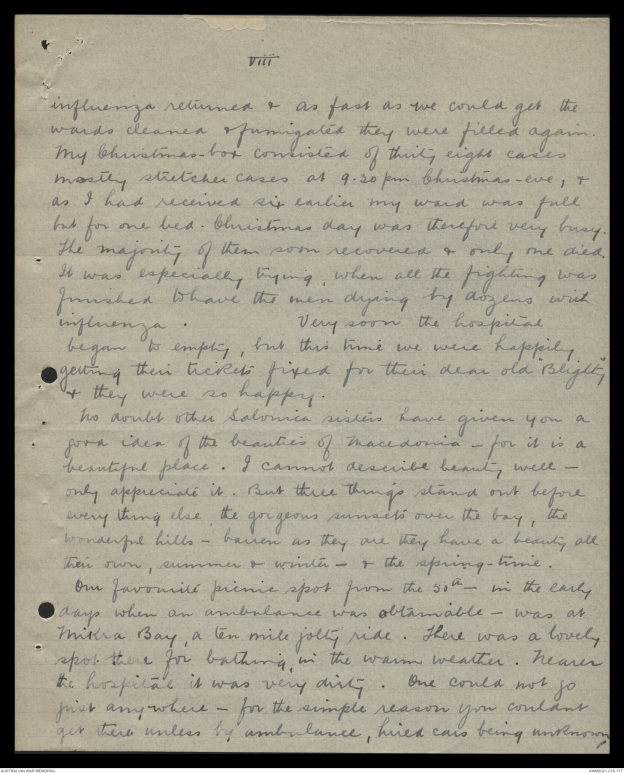 viii
influenza returned & as fast as we could get the
wards cleaned & fumigated they were filled again.
My Christmas-box consisted of thirty eight cases
mostly stretcher cases at 9.30 pm Christmas-eve, &
as I had received six earlier my ward was full
but for one bed. Christmas day was therefore very busy.
The majority of them soon recovered & only one died.
It was especially trying, when all the fighting was
finished to have the men dying by dozens with
influenza. Very soon the hospital
began to empty, but this time we were happily
getting their tickets fixed for their dear old "Blighty"
& they were so happy.
No doubt other Salonica sisters have given you a
good idea of the beauties of Macedonia – for it is a
beautiful place. I cannot describe beauty well –
only appreciate it. But three things stand out before
every thing else, the gorgeous sunsets over the bay, the
wonderful hills – barren as they are they have a beauty all
their own, summer & winter – & the spring-time.
Our favourite picnic spot from the 50th – in the early
days when an ambulance was obtainable – was at
Mikra Bay, a ten mile jolty ride. There was a lovely
spot there for bathing, in the warm weather. Nearer
the hospital it was very dirty. One could not go
just anywhere – for the simple reason you couldnt
get there unless by ambulance, hired cars being unknown
AUSTRALIAN WAR MEMORIAL
AWM2021.219.117